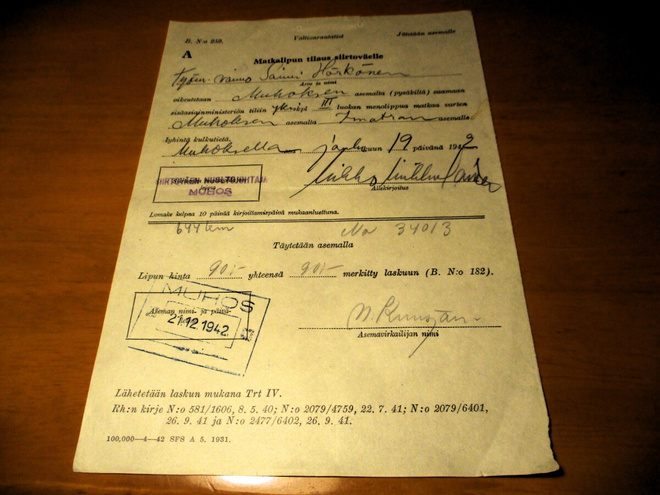 B. N:o 259. Valtionrautatiet Jätetään asemalle
A
Matkalipun tilaus siirtoväelle
Työm. vaimo Saimi Härkönen
Arvo ja nimi
oikeutetaan Muhoksen asemalta (pysäkiltä) saamaan
sisäasiainministeriön tiliin yksi III luokan menolippua matkaa varten
Muhoksen asemalta Imatran asemalle
lyhintä kulkutietä.
Muhoksella joulukuun 19 päivänä 1942
SIIRTOVÄEN HUOLTOJOHTAJA
MUHOS
Allekirjoitus
Lomake kelpaa 10 päivää kirjoittamispäivä mukaanluettuna.
644 km No 34013
Täytetään asemalla
Lipun hinta 90:- yhteensä 90:- merkitty laskuun (B. N:o 182).
MUHOS
Aseman nimi- ja päivä-
21.12.1942
Asemavirkailijan nimi
Lähetetään laskun mukana Trt IV.
Rh:n kirje N:o 581/1606, 8. 5. 40; N:o 2079/4759, 22. 7. 41; N:o 2079/6401,
26. 9. 41 ja N:o 2477/6402, 26. 9. 41.
100,000—4—42 SFS A 5. 1931.